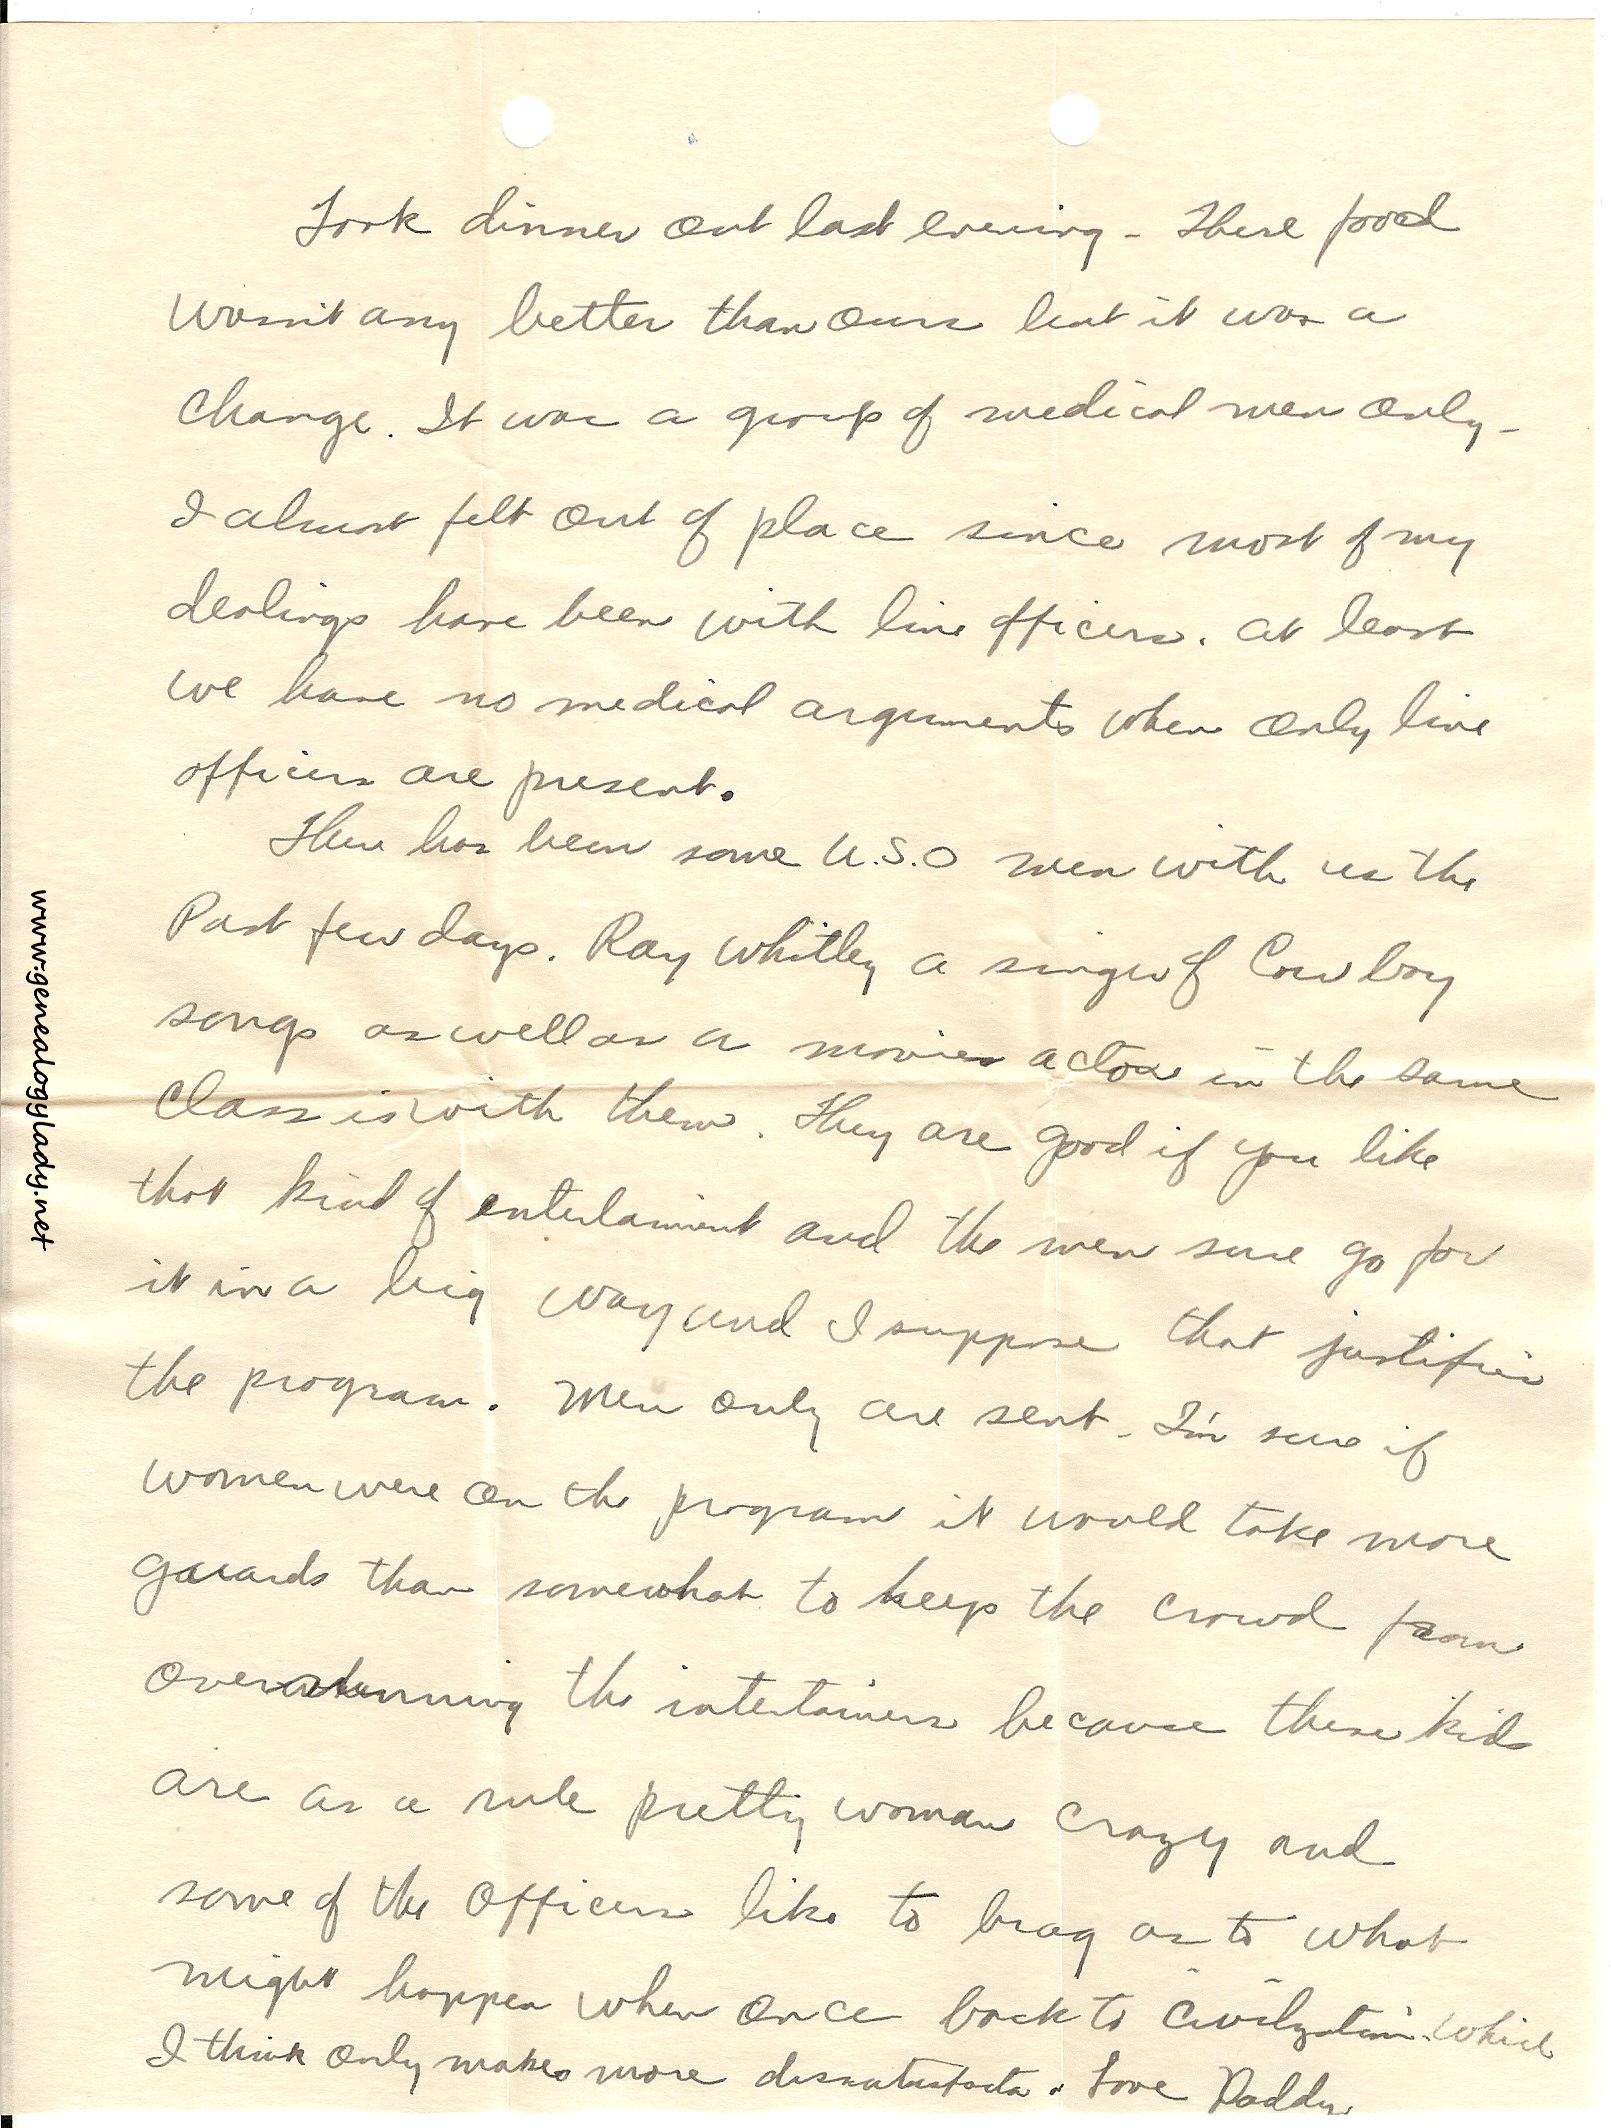 Took dinner out last evening - There food
wasn't any better than ours but it was a
change. It was a group of medical men only -
I almost felt out of place since most of my
dealings have been with line officers. At least
we have no medical arguments when only line
officers are present.
There has been some U.S.O men with us the
Past few days. Ray Whitley a singer of Cowboy
songs as well as a movie actor in the same
class is with them. They are good if you like
that kind of entertaiment and the men sure go for
it in a big way and I suppose that justifies
the program. Men only are sent - I'm sure if
women were on the program it would take more
guards than somewhat to keep the crowd from
over running the intertainers because these kids
are as a rule pretty woman crazy and
some of the officers like to brag as to what
might happen when once back to civilization which
I think only makes more . Love Daddy
www.genealogylady.net